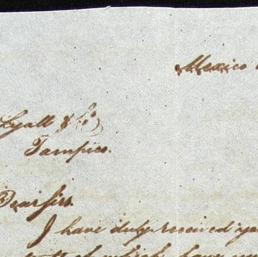 Mexico
Lyall & Co
Tampico.
Dear sirs.
I have duly received your
of which have